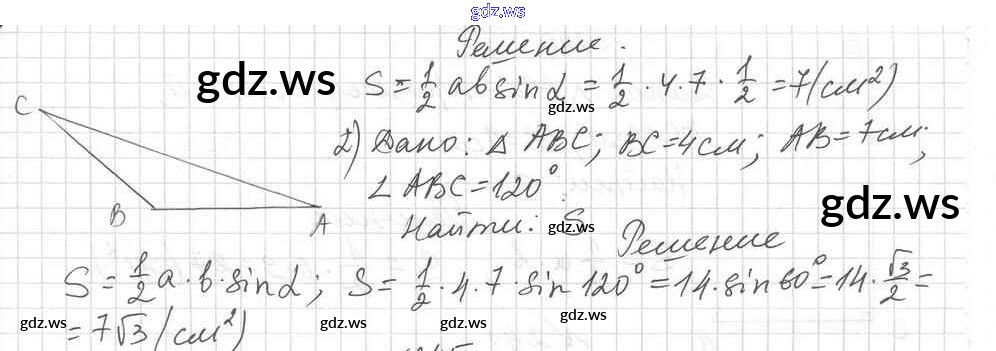 gdz.ws
Решение.
gdz.ws
S = 1/2 ab sin α = 1/2 · 4 · 7 · 1/2 = 7 (см²)
gdz.ws
C
2) Дано: Δ ABC; BC = 4 см; AB = 7 см;
∠ ABC = 120°
gdz.ws
B
A
Найти: S
gdz.ws
Решение
S = 1/2 a · b · sin α; S = 1/2 · 4 · 7 · sin 120° = 14 · sin 60° = 14 · √3/2 =
= 7√3 (см²)
gdz.ws
gdz.ws
gdz.ws
gdz.ws